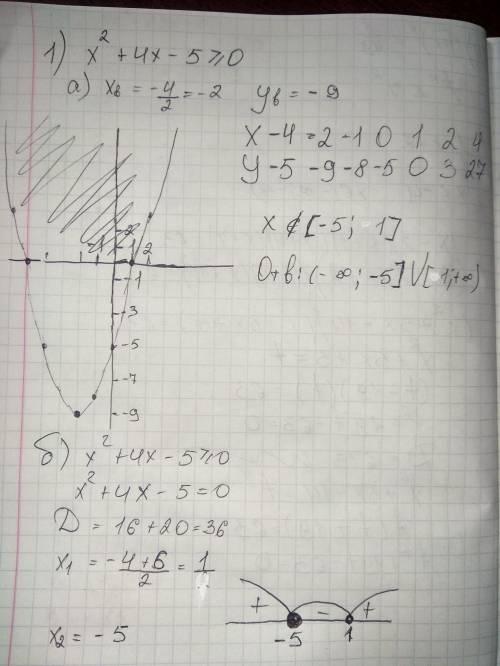 1) x² + 4x - 5 ≥ 0
а) xв = -4/2 = -2 yв = - 9
X -4 -2 -1 0 1 2 4
Y -5 -9 -8 -5 0 3 27
x ∉ [-5; 1]
Отв: (-∞; -5] V [1; +∞)
-1
1 2
-1
-3
-5
-7
-9
б) x² + 4x - 5 ≥ 0
x² + 4x - 5 = 0
D = 16 + 20 = 36
x₁ = (-4 + 6)/2 = 1
x₂ = - 5
+ - +
-5 1